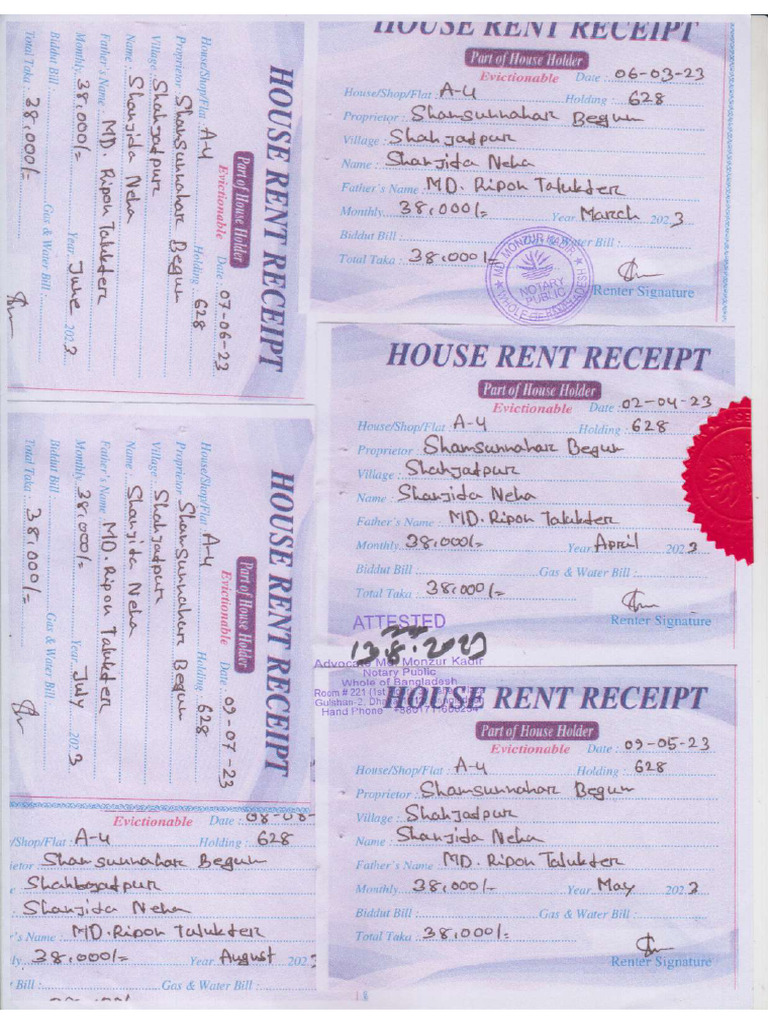 HOUSE RENT RECEIPT
Part of House Holder
Evictionable Date : 06-03-23
House/Shop/Flat : A-4 Holding : 628
Proprietor : Shamsunnahar Begum
Village : Shahjadpur
Name : Shanjida Neha
Father's Name : MD. Ripon Talukder
Monthly 38,000/= Year March 2023
Biddut Bill : Gas & Water Bill :
Total Taka : 38,000/=
MD. MONZUR KADIR
NOTARY PUBLIC
WHOLE OF BANGLADESH
Renter Signature
HOUSE RENT RECEIPT
Part of House Holder
Evictionable Date : 02-04-23
House/Shop/Flat : A-4 Holding : 628
Proprietor : Shamsunnahar Begum
Village : Shahjadpur
Name : Shanjida Neha
Father's Name : MD. Ripon Talukder
Monthly 38,000/= Year April 2023
Biddut Bill : Gas & Water Bill :
Total Taka : 38,000/=
Renter Signature
ATTESTED
13.8.2023
Advocate Md. Monzur Kadir
Notary Public
Whole of Bangladesh
Room # 221 (1st
Gulshan-2,
Hand Phone
HOUSE RENT RECEIPT
Part of House Holder
Evictionable Date : 09-05-23
House/Shop/Flat : A-4 Holding : 628
Proprietor : Shamsunnahar Begum
Village : Shahjadpur
Name : Shanjida Neha
Father's Name : MD. Ripon Talukder
Monthly 38,000/- Year May 2023
Biddut Bill : Gas & Water Bill :
Total Taka : 38,000/=
Renter Signature
HOUSE RENT RECEIPT
Part of House Holder
Evictionable Date : 07-06-23
House/Shop/Flat A-4 Holding : 628
Proprietor : Shamsunnahar Begum
Village : Shahjadpur
Name : Shanjida Neha
Father's Name : MD. Ripon Talukder
Monthly 38,000/= Year June 2023
Biddut Bill : Gas & Water Bill :
Total Taka : 38,000/=
HOUSE RENT RECEIPT
Part of House Holder
Evictionable Date : 09-07-23
House/Shop/Flat A-4 Holding : 628
Proprietor : Shamsunnahar Begum
Village : Shahjadpur
Name : Shanjida Neha
Father's Name : MD. Ripon Talukder
Monthly 38,000/- Year July 2023
Biddut Bill : Gas & Water Bill :
Total Taka : 38,000/=
Evictionable Date : 08-08-
/Shop/Flat : A-4 Holding : 628
ietor : Shamsunnahar Begum
Shanjida Neha
r's Name : MD. Ripon Talukder
ly 38,000/= Year August 2023
Bill : Gas & Water Bill :
18